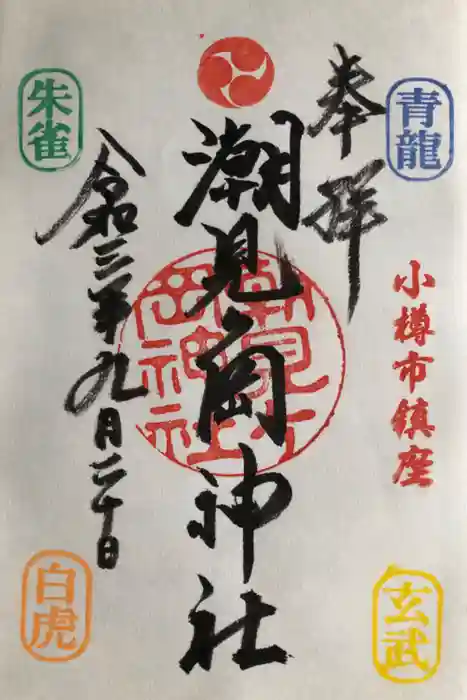 奉拝
青龍
小樽市鎮座
玄武
潮見岡神社
潮見岡神社
令和三年九月二十日
朱雀
白虎